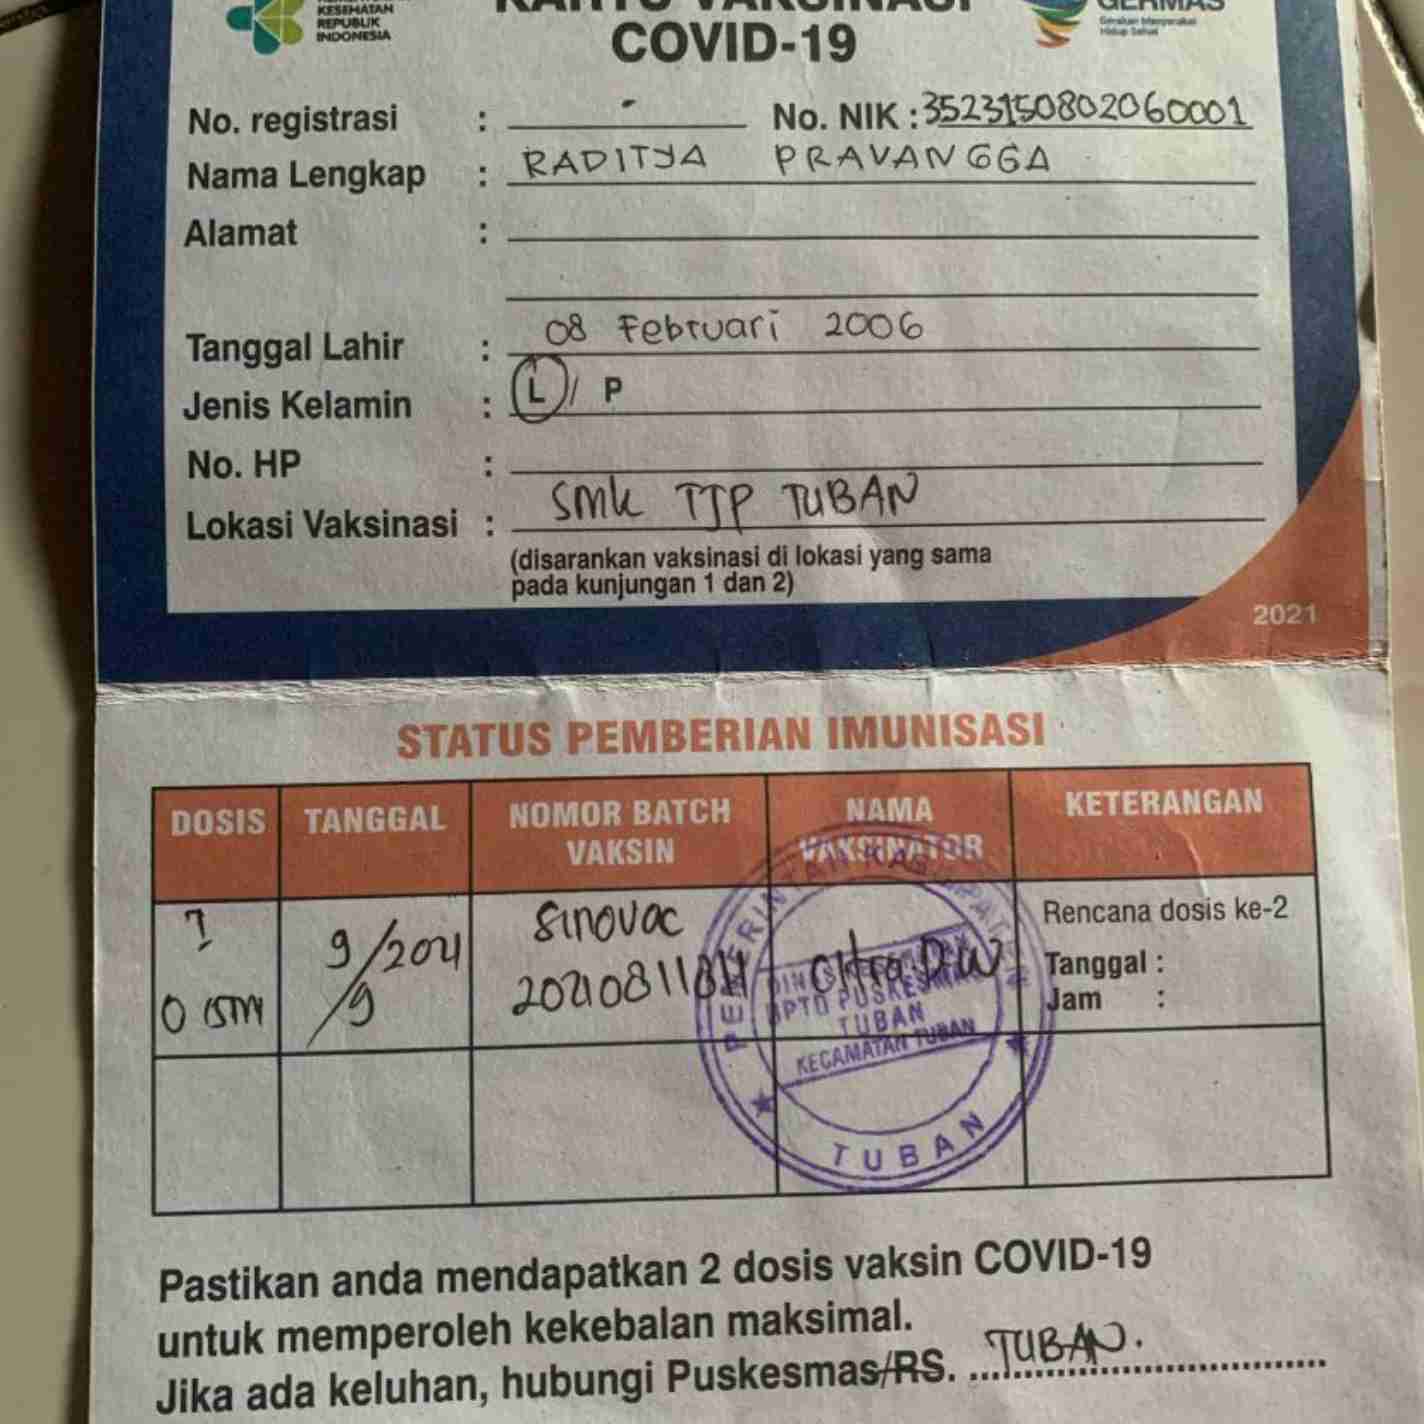 KESEHATAN
REPUBLIK
INDONESIA
KARTU VAKSINASI
COVID-19
GERMAS
Gerakan Masyarakat
Hidup Sehat
No. registrasi : - No. NIK : 3523150802060001
Nama Lengkap : RADITYA PRAVANGGA
Alamat :
Tanggal Lahir : 08 Februari 2006
Jenis Kelamin : L / P
No. HP :
Lokasi Vaksinasi : SMK TJP TUBAN
(disarankan vaksinasi di lokasi yang sama
pada kunjungan 1 dan 2)
2021
STATUS PEMBERIAN IMUNISASI
DOSIS TANGGAL NOMOR BATCH VAKSIN NAMA VAKSINATOR KETERANGAN
9/9 2021
Sinovac
Citra DW
Rencana dosis ke-2
Tanggal :
Jam :
UPTD PUSKESMAS
TUBAN
KECAMATAN TUBAN
TUBAN
Pastikan anda mendapatkan 2 dosis vaksin COVID-19
untuk memperoleh kekebalan maksimal.
Jika ada keluhan, hubungi Puskesmas/RS. TUBAN.